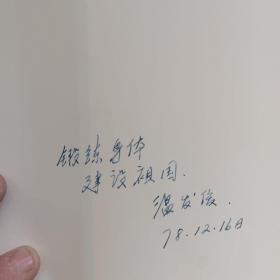 锻炼身体
建设祖国.
温发俊.
78.12.16日